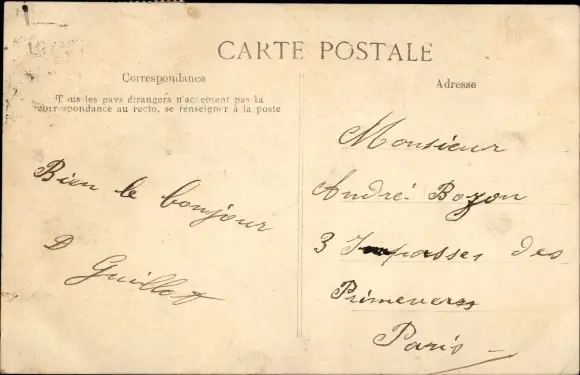 CARTE POSTALE
Correspondance
Tous les pays étrangers n'acceptent pas la
correspondance au recto, se renseigner à la poste
Bien le bonjour
D Guillot
Adresse
Monsieur
André Bozon
3 Impasses des
Primeveres
Paris